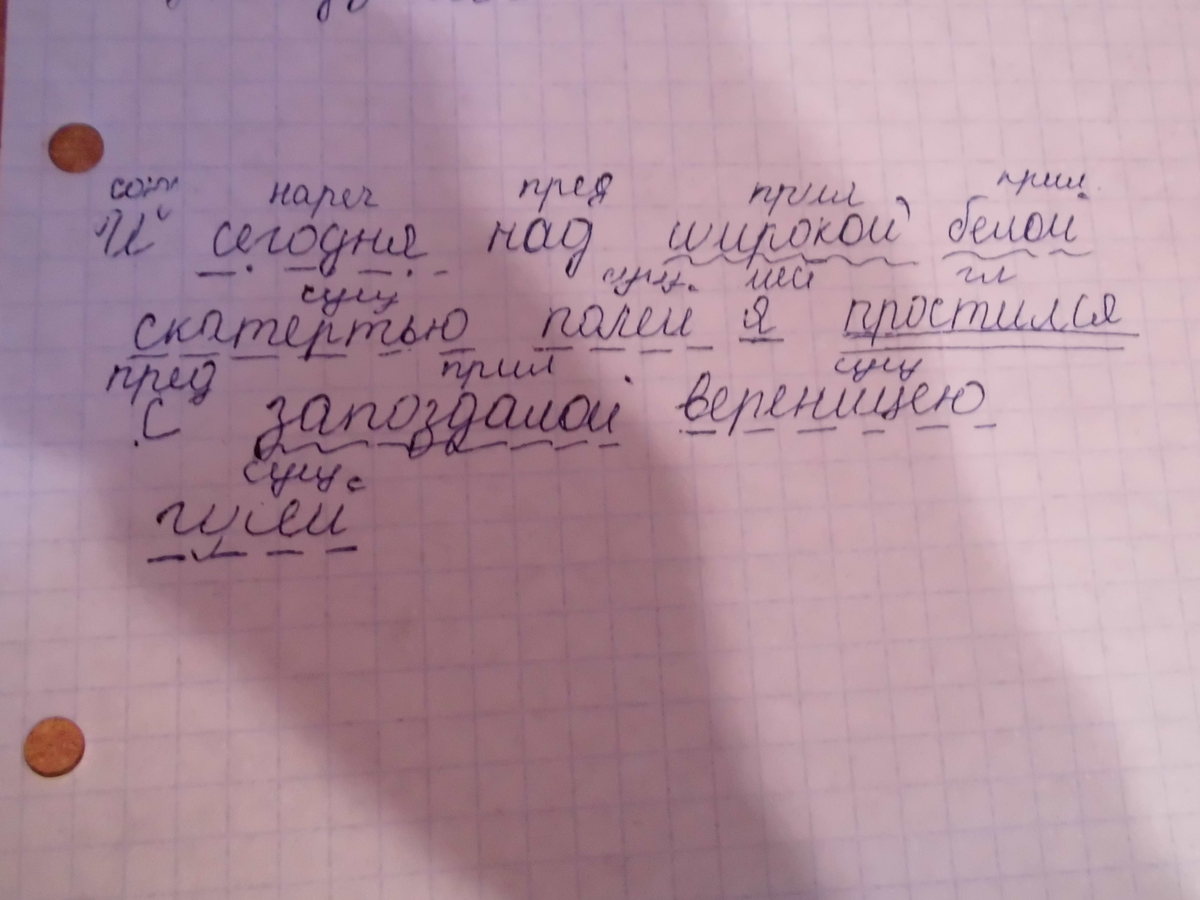 союз нареч пред прил прил
И сегодня над широкой белой
сущ сущ. мес гл
скатертью полей я простился
пред прил сущ
с запоздалой вереницею
сущ.
гулей